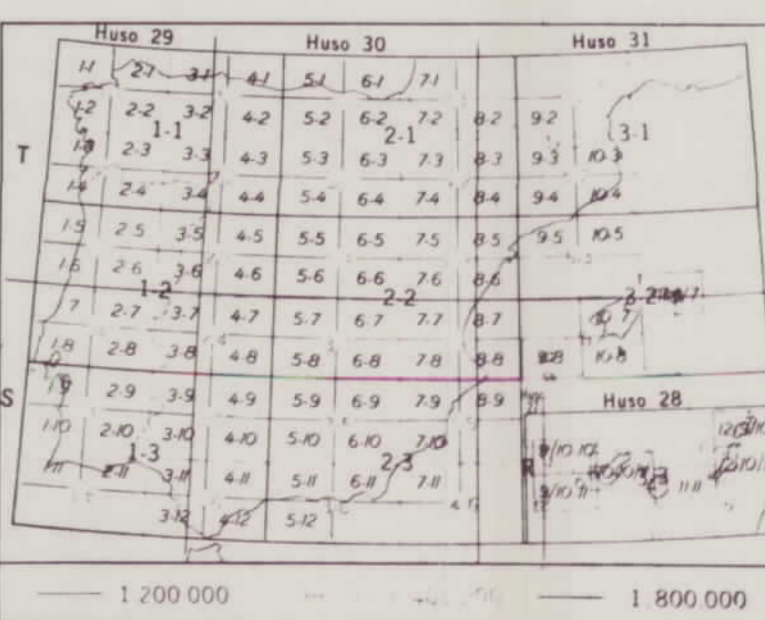 Huso 29 Huso 30 Huso 31
1-1 2-1 3-1 4-1 5-1 6-1 7-1
1-2 2-2 3-2 4-2 5-2 6-2 7-2 8-2 9-2
1-1 2-1 3-1
T 2-3 3-3 4-3 5-3 6-3 7-3 8-3 9-3 10-3
1-4 2-4 3-4 4-4 5-4 6-4 7-4 8-4 9-4 10-4
1-5 2-5 3-5 4-5 5-5 6-5 7-5 8-5 9-5 10-5
1-6 2-6 3-6 4-6 5-6 6-6 7-6 8-6
1-2 2-2 3-2
7 2-7 3-7 4-7 5-7 6-7 7-7 8-7
1-8 2-8 3-8 4-8 5-8 6-8 7-8 8-8 10-8
S 1-9 2-9 3-9 4-9 5-9 6-9 7-9 8-9 Huso 28
1-10 2-10 3-10 4-10 5-10 6-10 7-10
1-3 2-3
R
2-11 3-11 4-11 5-11 6-11 7-11 11-11
3-12 4-12 5-12
1:200.000 1:800.000